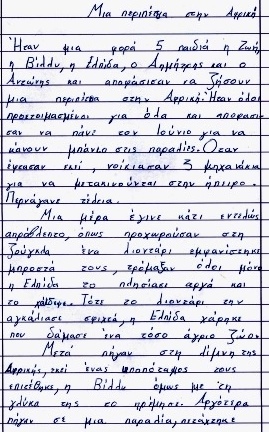 Μια περιπέτεια στην Αφρική
Ήταν μια φορά 5 παιδιά η Ζωή,
η Βίλλυ, η Ελπίδα, ο Δημήτρης και ο
Αντώνης και αποφάσισαν να ζήσουν
μια περιπέτεια στην Αφρική. Ήταν όλοι
προετοιμασμένοι για όλα και αποφασι-
σαν να πάνε τον Ιούνιο για να
κάνουν μπάνιο στις παραλίες. Όταν
έφτασαν εκεί, νοίκιασαν 3 μηχανάκια
για να μετακινούνται στην ήπειρο.
Περνάγανε τέλεια.
Μια μέρα έγινε κάτι εντελώς
απρόβλεπτο, όπως προχωρούσαν στη
ζούγκλα ένα λιοντάρι εμφανίστηκε
μπροστά τους, τρόμαξαν όλοι μόνο
η Ελπίδα το πλησίασε αργά και
το χάιδεψε. Τότε το λιοντάρι την
αγκάλιασε σφιχτά, η Ελπίδα χάρηκε
που δάμασε ένα τόσο άγριο ζώο.
Μετά πήγαν στη λίμνη της
Αφρικής, εκεί ένας ιπποπόταμος τους
επιτέθηκε, η Βίλλυ όμως με τη
γλύκα της το ηρέμησε. Αργότερα
πήγαν σε μια παραλία,